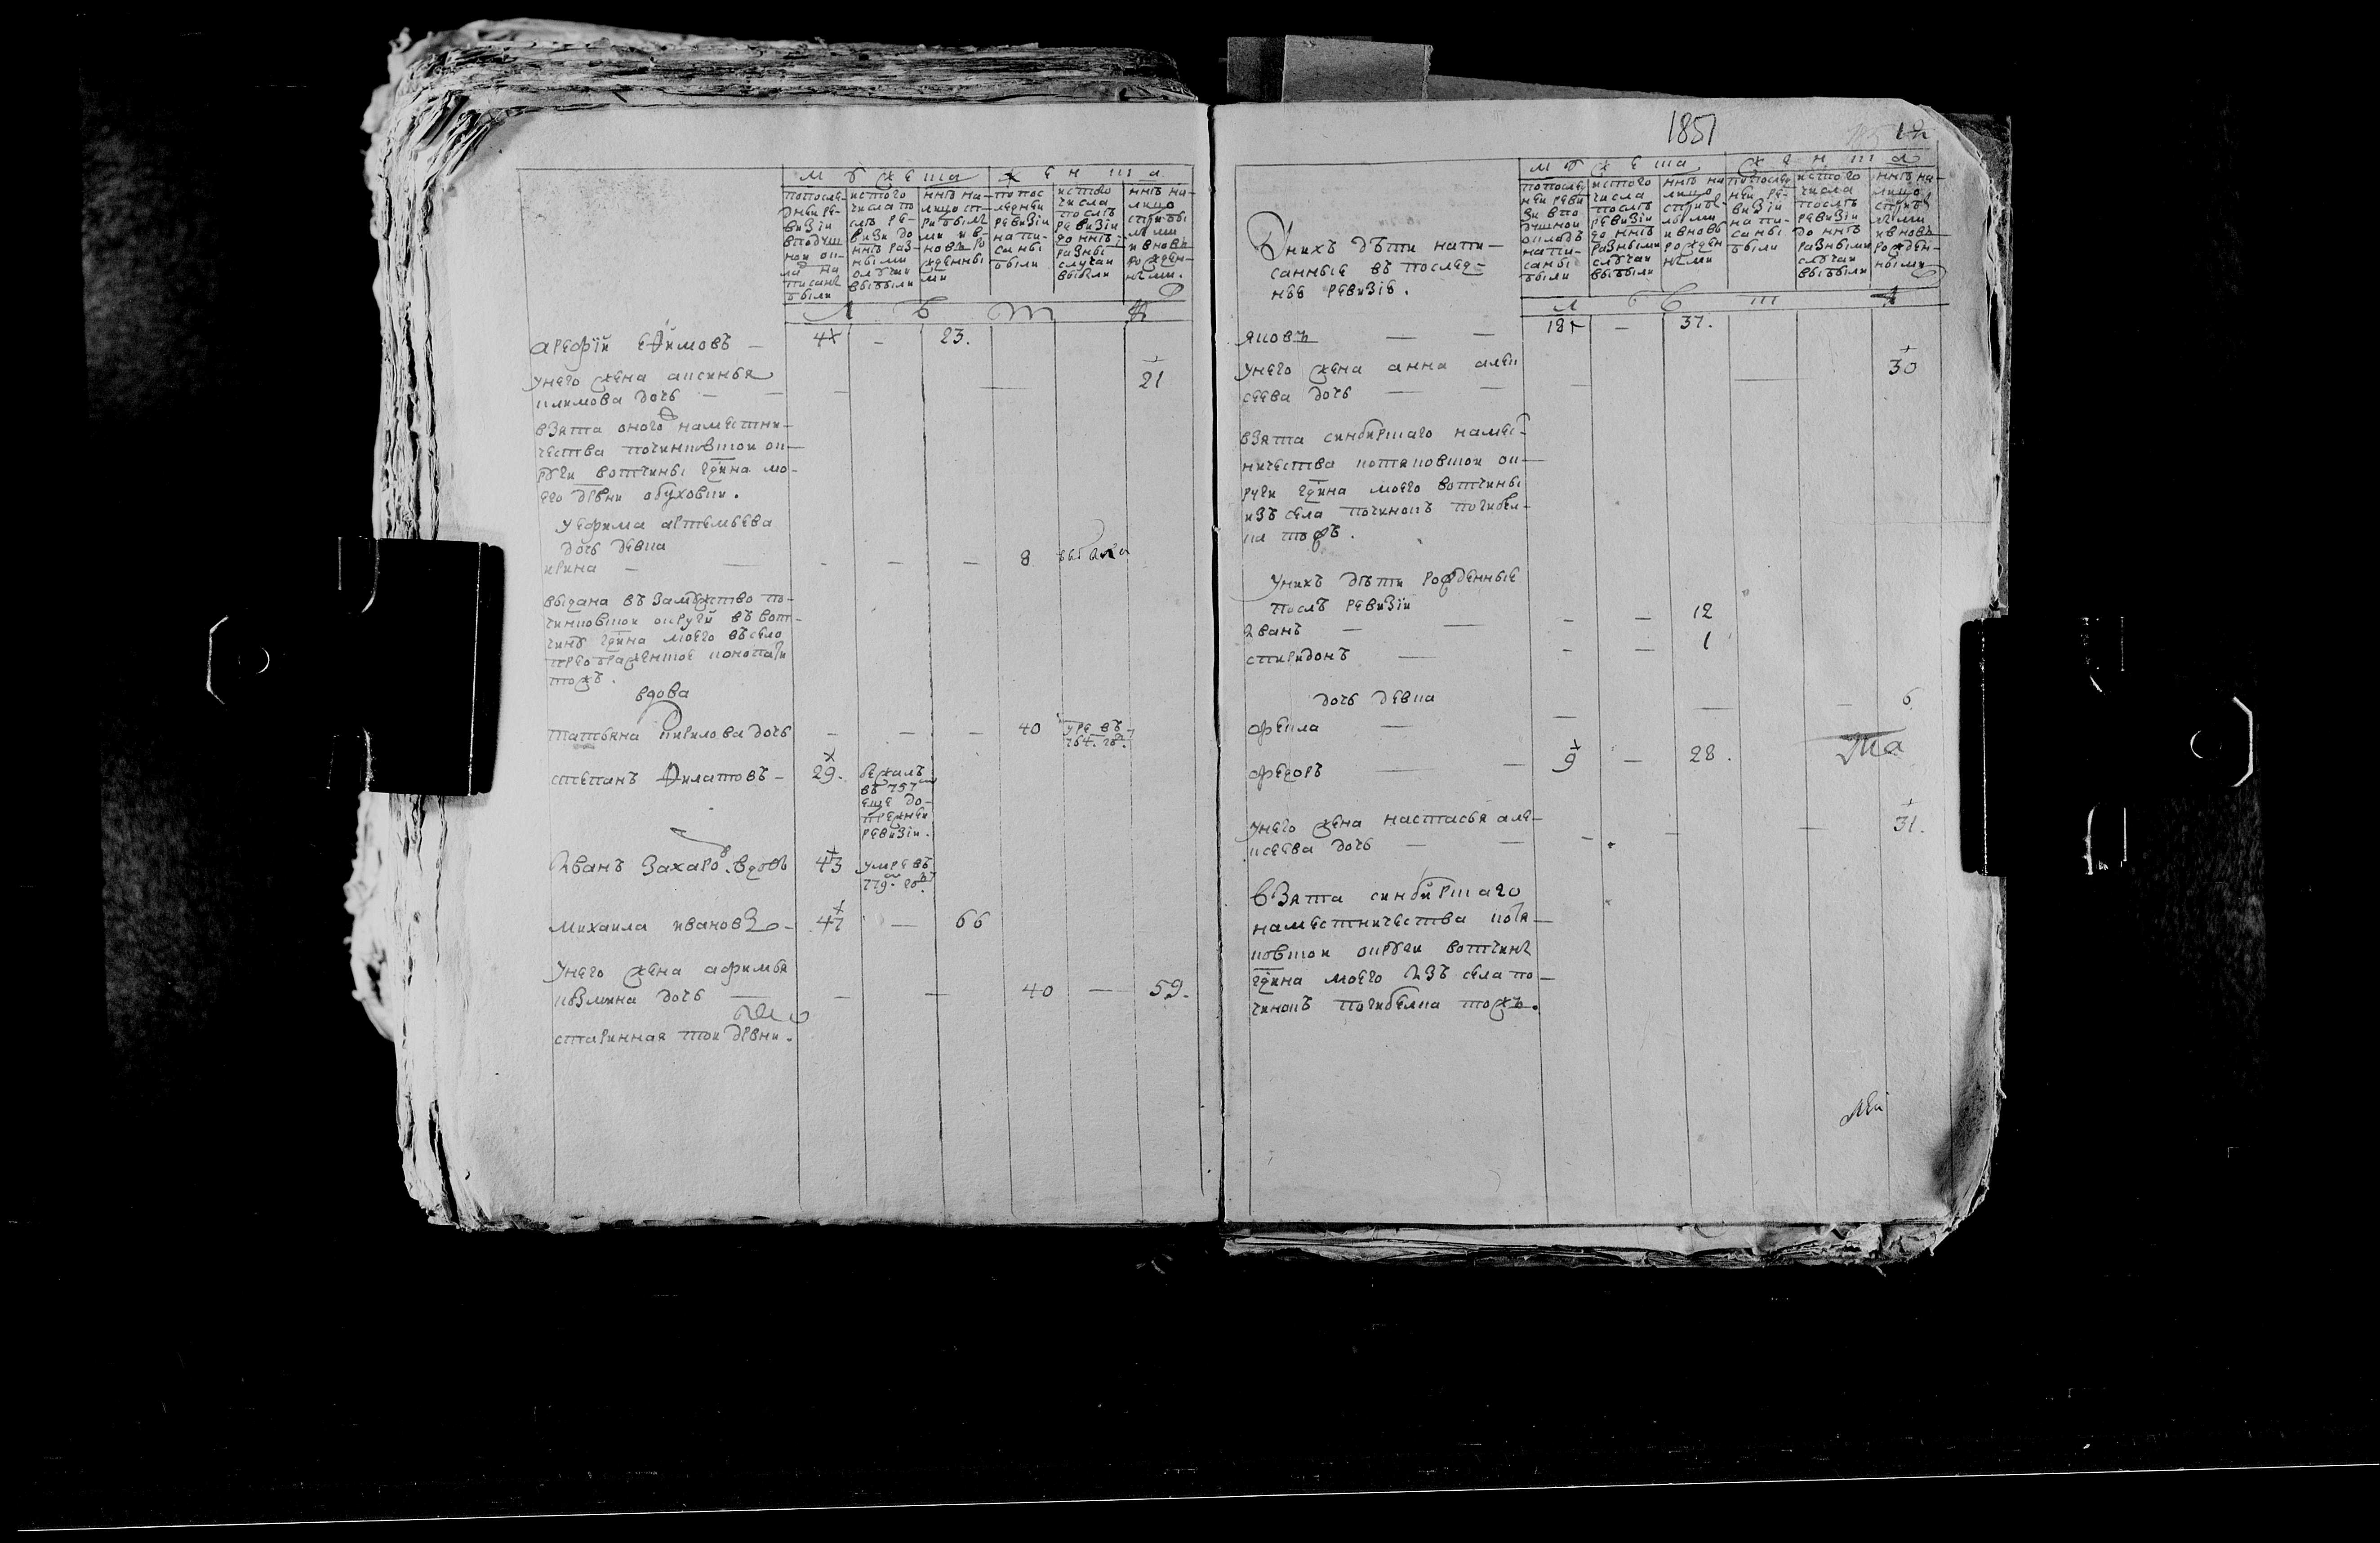 мужеска женска
попосле-
дней ре-
визiи
вподуш
ной ок-
ладъ на
писаны
были
истого
числа по
слѣ ре-
визи до
ннѣ раз-
ными
случаи
выбыли
ннѣ на-
лицо съ
прибылы
ми и в-
новь ро
жденны
ми
попос
ледней
ревизiи
напи-
саны
были
истого
числа
послѣ
ревизiи
до ннѣ
разны
случаи
выбыли
ннѣ на-
лицо
сприбы
лыми
ивновь
рожден-
ными.
л ѣ т а
арефiй ефимовъ — 4 — 23.
унего жена аксинья
климова дочь — — — — 21
взята оного намѣстни-
чества починковской ок-
руги вотчины гдина мо-
его дрвни обуховки.
уефима артемьева
дочь девка
ирина — — — — — 8 выбыла
выдана въ замужство по-
чинковской округи въ вот-
чинѣ гдина моего въ село
преображенское конопати
тожъ.
вдова
татьяна кирилова дочь — — — 40 умре въ
764. году
степанъ филатовъ — 29. бежалъ
въ 757
еще до-
прежней
ревизiи.
Иванъ Захаро. вдовъ 43 умре въ
779. году
михаила ивановъ — 47 — 66
унего жена афимья
кузмина дочь — — — 40 — 59.
старинная той дрвни.
1851
мужеска женска
попослед
ней реви
зи впо
душной
окладъ
напи-
саны
были
истого
числа
послѣ
ревизiи
до ннѣ
разными
случаи
выбыли
ннѣ на
лицо
сприбы-
лыми
ивновь
рожден
ными
попослед
ней ре-
визiи
напи-
саны
были
истого
числа
послѣ
ревизiи
до ннѣ
разными
случаи
выбыли
ннѣ на-
лицо
сприбы
лыми
ивновь
рожден-
ными
л ѣ т а
Уних дѣти напи-
санные въ послед-
нѣе ревизiе.
яковъ — — 18 — 37.
унего жена анна алек
сеева дочь — — — — 30
взята синбирскаго намѣс-
ничества котяковской ок-
руги гдина моего вотчины
изъ села починокъ погибел-
ка тожъ.
унихъ дѣти рожденные
послѣ ревизiи
Иванъ — — — — 12
спиридонъ — — — 1
дочь девка
фекла — — — — 6
федоръ — — 9 — 28.
унего жена настасья але-
ксеева дочь — — — — — 31.
взята синбирскаго
намѣстничества котя-
ковской округи вотчины
гдина моего Изъ села по-
чинокъ погибелка тожъ.